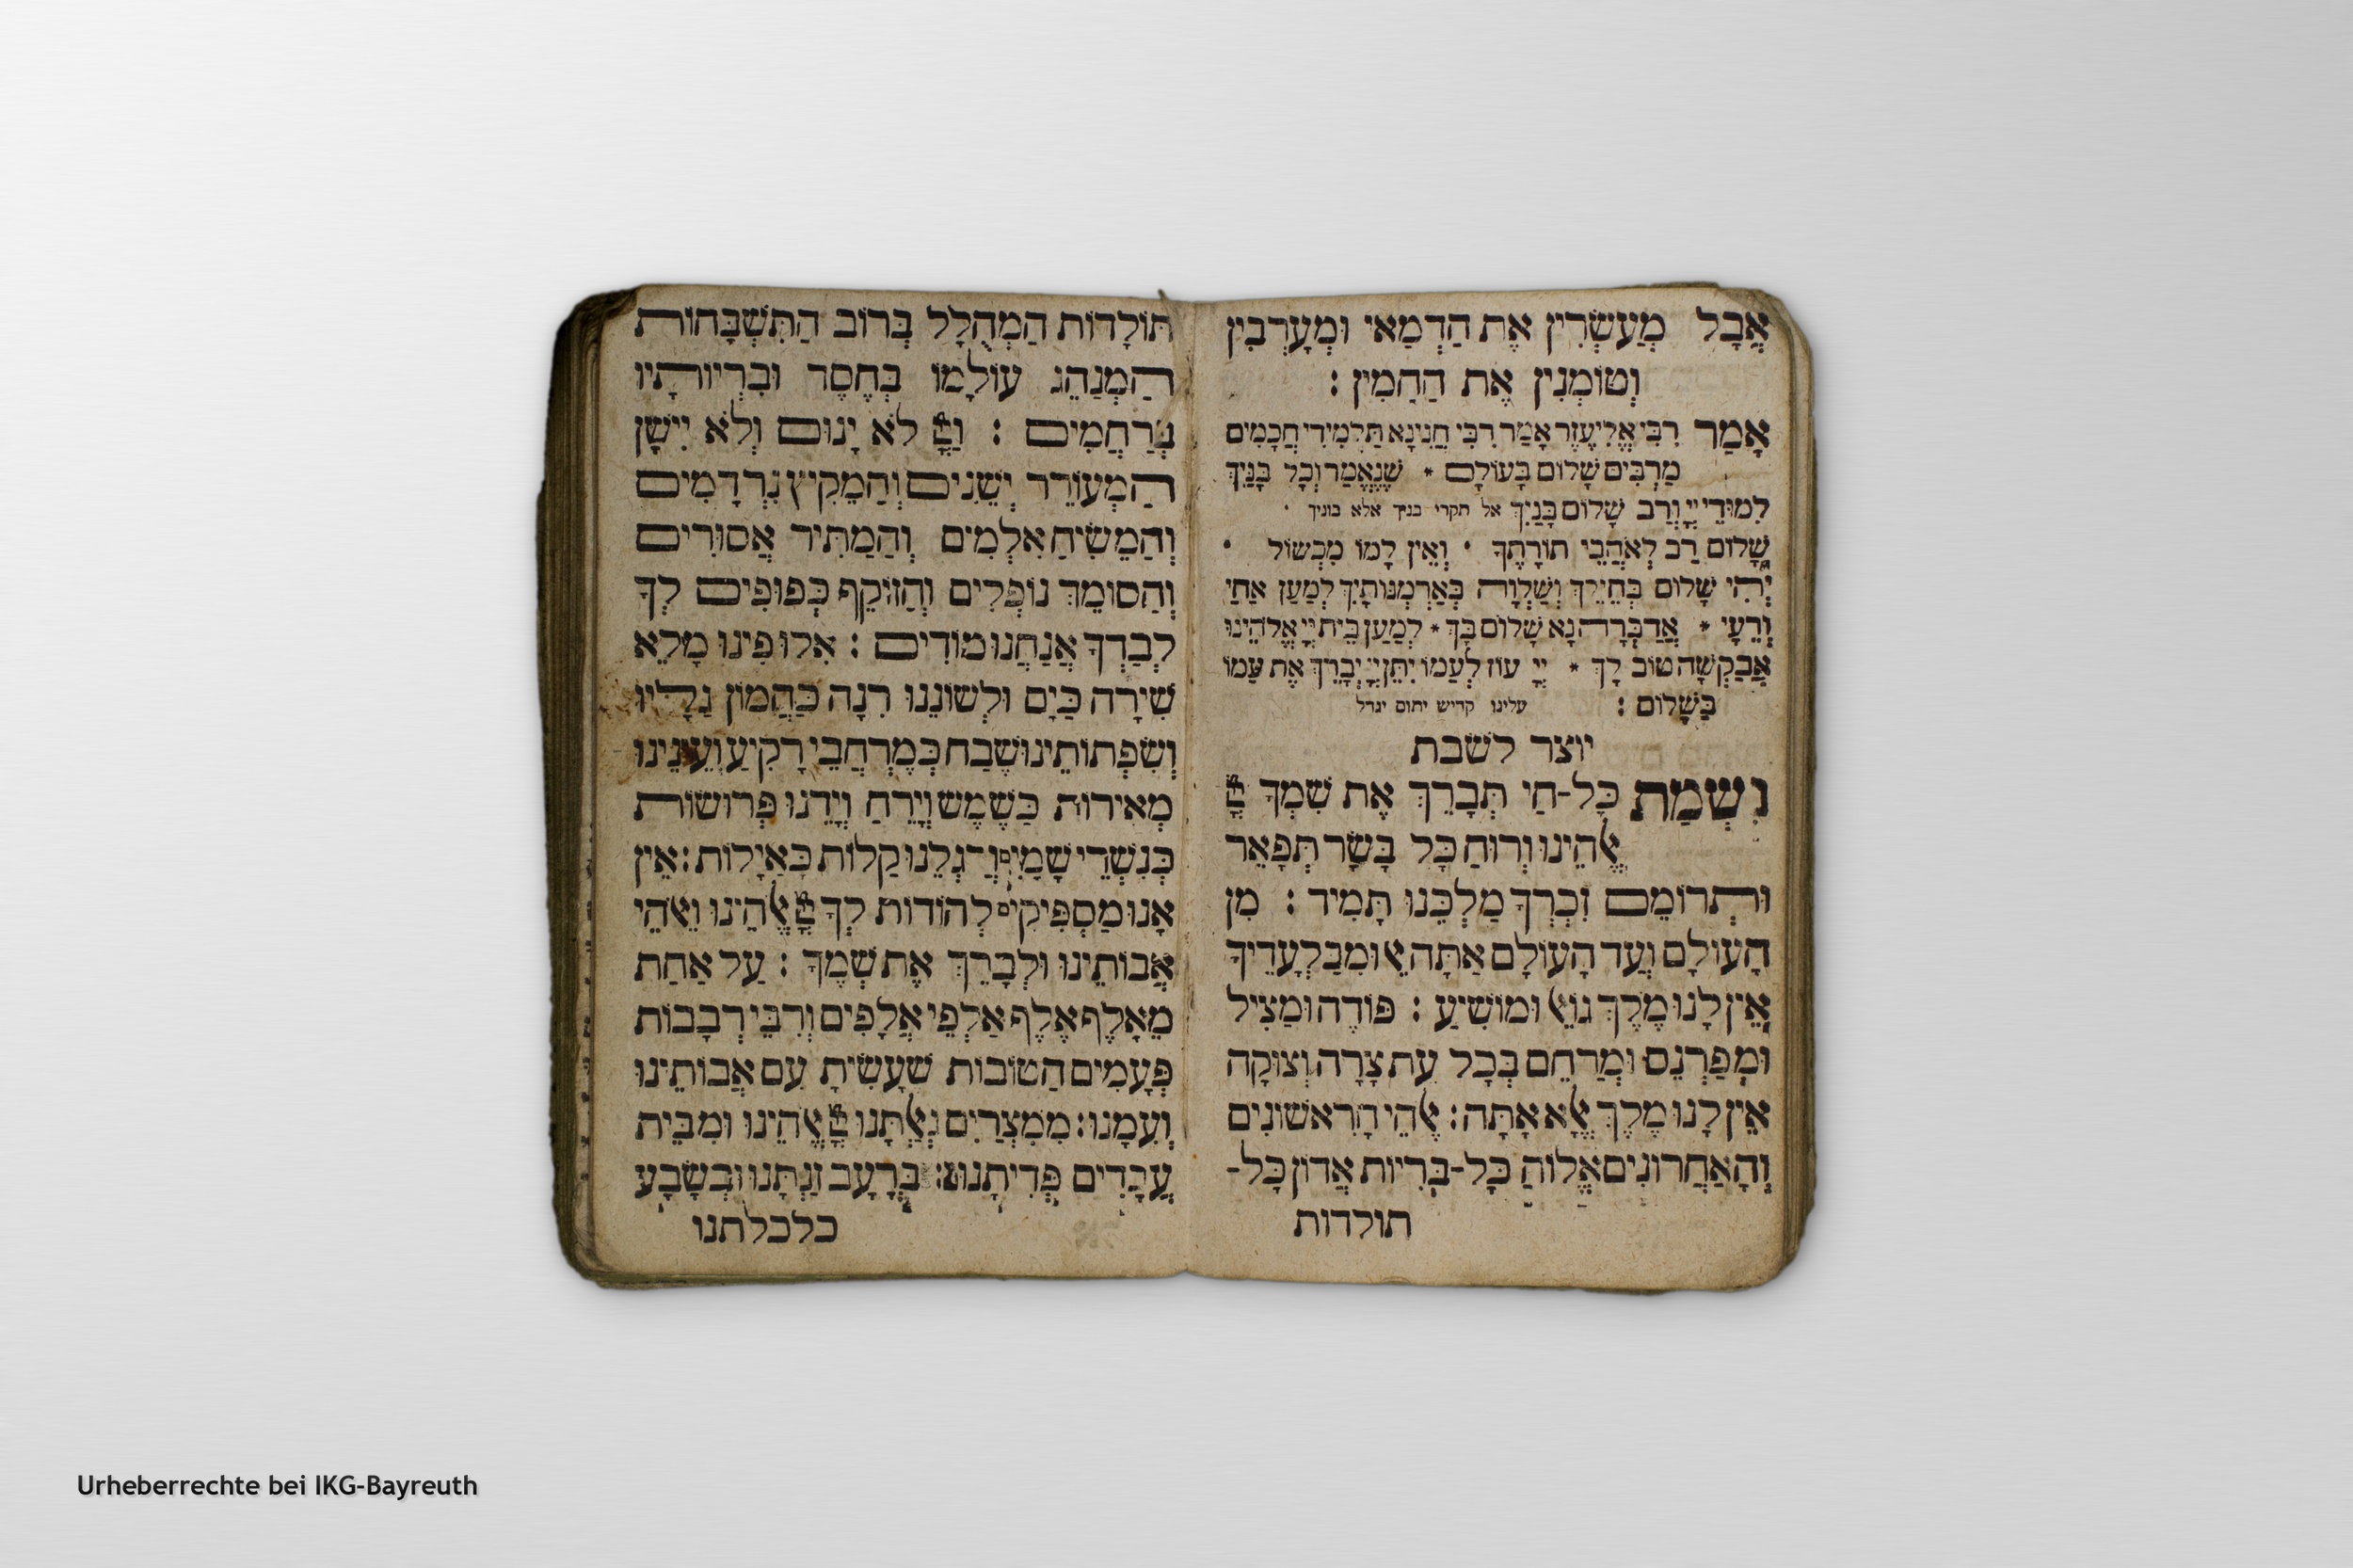 אֲבָל מְעַשְּׂרִין אֶת הַדְּמַאי וּמְעָרְבִין
וְטוֹמְנִין אֶת הַחַמִּין :
אָמַר רִבִּי אֱלִיעֶזֶר אָמַר רִבִּי חֲנִינָא תַּלְמִידֵי חֲכָמִים
מַרְבִּים שָׁלוֹם בָּעוֹלָם * שֶׁנֶּאֱמַר וְכָל בָּנַיִךְ
לִמּוּדֵי יְיָ וְרַב שָׁלוֹם בָּנַיִךְ אל תקרי בניך אלא בוניך
שָׁלוֹם רַב לְאֹהֲבֵי תוֹרָתֶךָ · וְאֵין לָמוֹ מִכְשׁוֹל ·
יְהִי שָׁלוֹם בְּחֵילֵךְ וְשַׁלְוָה בְּאַרְמְנוֹתָיִךְ לְמַעַן אַחַי
וְרֵעָי * אֲדַבְּרָה נָּא שָׁלוֹם בָּךְ * לְמַעַן בֵּית יְיָ אֱלֹהֵינוּ
אֲבַקְשָׁה טוֹב לָךְ * יְיָ עוֹז לְעַמּוֹ יִתֵּן יְיָ יְבָרֵךְ אֶת עַמּוֹ
בַּשָּׁלוֹם : עלינו קדיש יתום יגדל
יוצר לשבת
נִשְׁמַת כָּל-חַי תְּבָרֵךְ אֶת שִׁמְךָ
אֱﭏהֵינוּ וְרוּחַ כָּל בָּשָׂר תְּפָאֵר
וּתְרוֹמֵם זִכְרְךָ מַלְכֵּנוּ תָּמִיד : מִן
הָעוֹלָם וְעַד הָעוֹלָם אַתָּה ﭏ וּמִבַּלְעָדֶיךָ
אֵין לָנוּ מֶלֶךְ גּוֹﭏ וּמוֹשִׁיעַ : פּוֹדֶה וּמַצִּיל
וּמְפַרְנֵס וּמְרַחֵם בְּכָל עֵת צָרָה וְצוּקָה
אֵין לָנוּ מֶלֶךְ אֶﭏָּא אָתָּה : ﭏהֵי הָרִאשׁוֹנִים
וְהָאַחֲרוֹנִים אֱלוֹהַּ כָּל-בְּרִיּוֹת אֲדוֹן כָּל-
תולדות
תּוֹלָדוֹת הַמְהֻלָּל בְּרוֹב הַתִּשְׁבָּחוֹת
הַמְנַהֵג עוֹלָמוֹ בְּחֶסֶד וּבְרִיּוֹתָיו
בְּרַחֲמִים : לֹא יָנוּם וְלֹא יִישָׁן
הַמְעוֹרֵר יְשֵׁנִים וְהַמֵּקִיץ נִרְדָּמִים
וְהַמֵּשִׂיחַ אִלְּמִים וְהַמַּתִּיר אֲסוּרִים
וְהַסּוֹמֵךְ נוֹפְלִים וְהַזּוֹקֵף כְּפוּפִים לְךָ
לְבַדְּךָ אֲנַחְנוּ מוֹדִים : אִלּוּ פִינוּ מָלֵא
שִׁירָה כַּיָּם וּלְשׁוֹנֵנוּ רִנָּה כַּהֲמוֹן גַּלָּיו
וְשִׂפְתוֹתֵינוּ שֶׁבַח כְּמֶרְחֲבֵי רָקִיעַ וְעֵינֵינוּ
מְאִירוֹת כַּשֶּׁמֶשׁ וְיָרֵחַ וְיָדֵנוּ פְּרוּשׂוֹת
כְּנִשְׁרֵי שָׁמָיִם וְרַגְלֵנוּ קַלּוֹת כָּאַיָּלוֹת : אֵין
אָנוּ מַסְפִּיקִים לְהוֹדוֹת לְךָ אֱﭏהֵינוּ וֵﭏהֵי
אֲבוֹתֵינוּ וּלְבָרֵךְ אֶת שְׁמֶךָ : עַל אַחַת
מֵאָלֶף אֶלֶף אַלְפֵי אֲלָפִים וְרִבֵּי רְבָבוֹת
פְּעָמִים הַטּוֹבוֹת שֶׁעָשִׂיתָ עִם אֲבוֹתֵינוּ
וְעִמָּנוּ : מִמִּצְרַיִם גְּﭏתָּנוּ אֱﭏהֵינוּ וּמִבֵּית
עֲבָדִים פְּדִיתָנוּ : בְּרָעָב זַנְתָּנוּ וּבְשָׂבָע
כלכלתנו
Urheberrechte bei IKG-Bayreuth